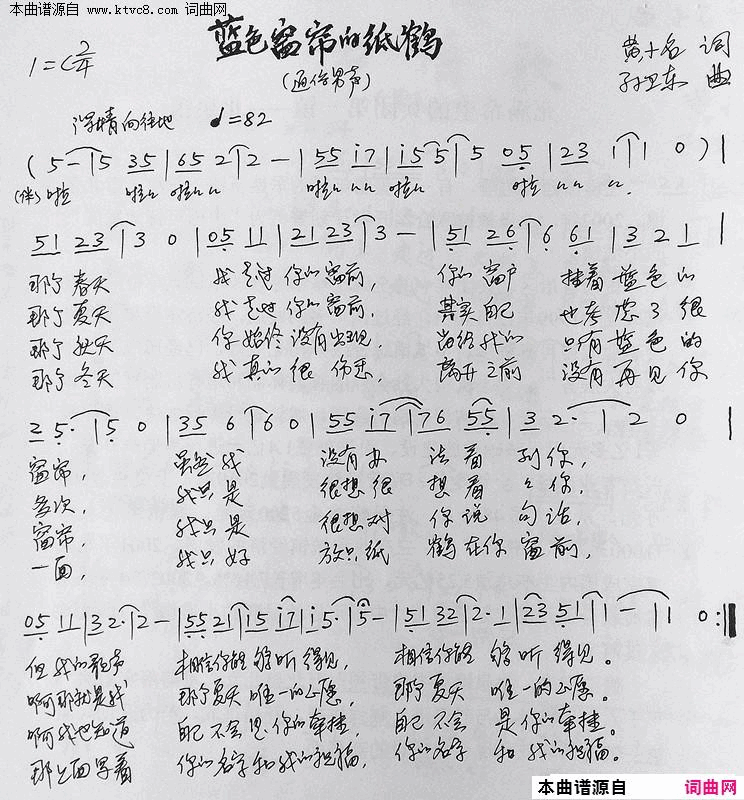 本曲谱源自 www.ktvc8.com 词曲网
蓝色窗帘的纸鹤
(通俗男声)
1=C 2/4
黄小名 词
孙卫东 曲
深情向往地 ♩=82
(5-|5 35|65 2|2-|55 i7|i5 5|5 05|23 1|1 0)|
(伴)啦 啦 啦 啦 啦 啦
51 23|3 0|05 11|21 23|3-|51 26|6 61|3 2 1|
那个春天 我走过你的窗前, 你的窗户 挂着蓝色的
那个夏天 我走过你的窗前, 其实自己 也考虑了很
那个秋天 你始终没有出现, 留给我的 只有蓝色的
那个冬天 我真的很伤悲, 离开之前 没有再见你
2 5·|5 0|35 6|6 0|55 i7|76 55|3 2·|2 0|
窗帘, 虽然我 没有办 法看到你,
多次, 我只是 很想很 想看看你,
窗帘 我只是 很想对 你说句话,
一面, 我只好 放只纸 鹤在你窗前,
05 11|32·|2-|55 21|15 i7|i5·|5-|51 32|2·1|23 51|1-|1 0:‖
但我的歌声 相信你能够听得见, 相信你能够听得见。
啊那就是我 那个夏天唯一的心愿, 那个夏天唯一的心愿。
啊我也知道 自己不会是你的牵挂, 自己不会是你的牵挂。
那上面写着 你的名字和我的祝福, 你的名字和我的祝福。
本曲谱源自 词曲网